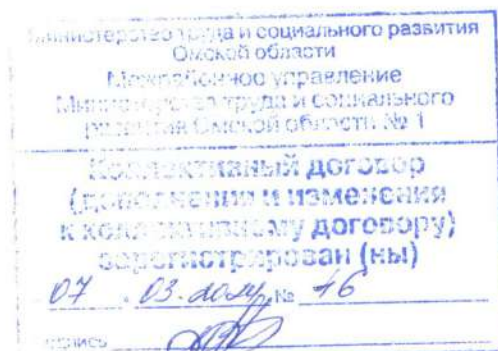 Министерство труда и социального развития
Омской области
Межрайонное управление
Министерства труда и социального
развития Омской области № 1
Коллективный договор
(дополнения и изменения
к коллективному договору)
зарегистрирован (ны)
07 . 03. 2024 № 16
подпись